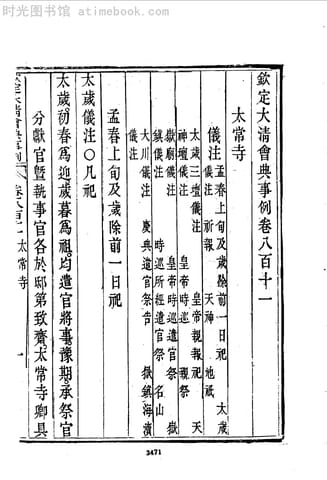 时光图书馆 — atimebook.com
欽定大清會典事例卷八百十一
太常寺
儀注 孟春上旬及歲除前一日祀 太歲
儀注 祈報 天神 地祇
太歲三壇儀注 皇帝親報祀 天
神壇儀注 皇帝時巡親祭 嶽
嶽廟儀注 皇帝時巡遣官祭
鎮儀注 時巡所經遣官祭 名山
大川儀注 慶典遣官祭告 嶽鎮海瀆
儀注
孟春上旬及歲除前一日祀
太歲儀注○凡祀
太歲初春爲迎歲暮爲祖均遣官將事豫期承祭官
分獻官曁執事官各於邸第致齋太常寺卿具
太常寺
一
3471